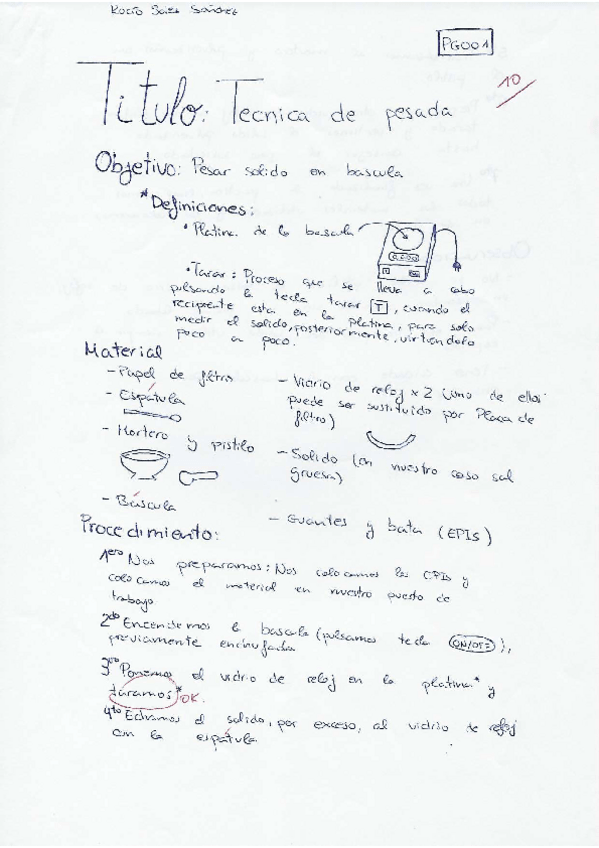 Rocío Sánchez
PG001
10
Titulo: Tecnica de pesada
Objetivo: Pesar solido en bascula
*Definiciones:
• Platina de la bascula
• Tarar: Proceso que se lleva a cabo
pulsando la tecla tarar T, cuando el
recipiente esta en la platina, para solo
medir el solido, posteriormente, virtiendolo
poco a poco.
Material
- Papel de filtro
- Espátula
- Mortero y pistilo
- Báscula
- Vidrio de reloj x 2 (uno de ellos
puede ser sustituido por Placa de
filtro)
- Solido (en nuestro caso sal
gruesa)
- Guantes y bata (EPIs)
Procedimiento:
1ero Nos preparamos: Nos colocamos los EPIs y
colocamos el material en nuestro puesto de
trabajo
2do Encendemos la bascula (pulsamos tecla ON/OFF),
previamente enchufada
3ero Ponemos el vidrio de reloj en la platina* y
taramos* OK.
4to Echamos el solido, por exceso, al vidrio de reloj
con la espátula